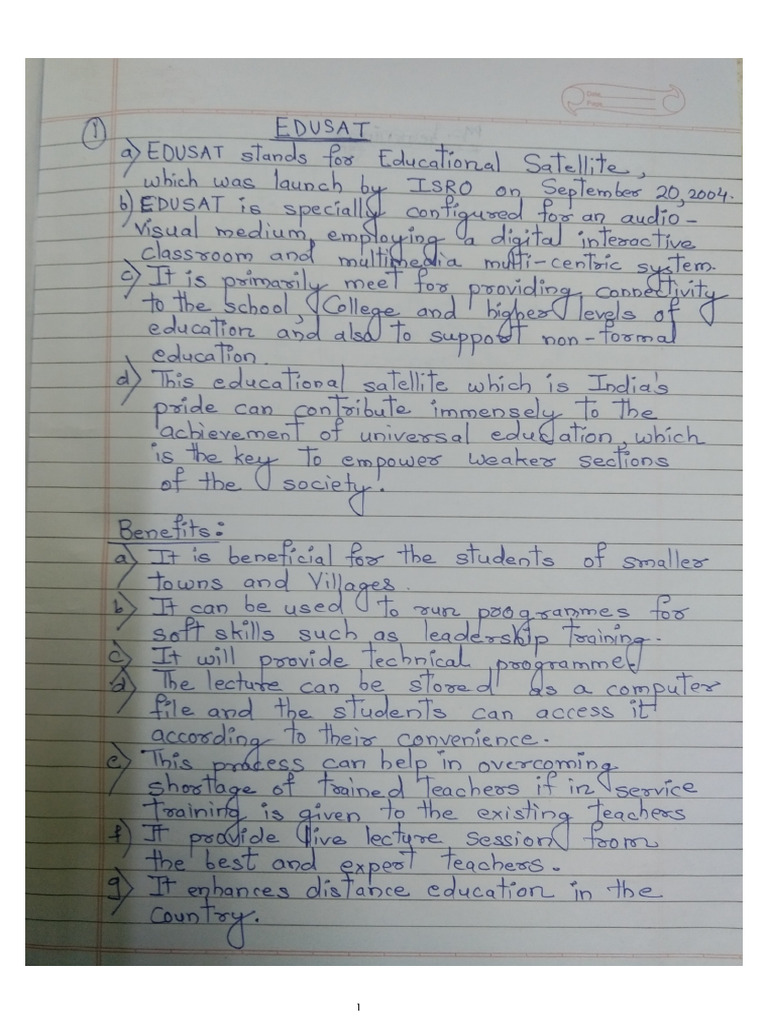 Date
Page
① EDUSAT
a) EDUSAT stands for Educational Satellite,
which was launch by ISRO on September 20,2004.
b) EDUSAT is specially configured for an audio-
visual medium, employing a digital interactive
classroom and multimedia multi-centric system.
c) It is primarily meet for providing connectivity
to the school, College and higher levels of
education and also to support non-formal
education.
d) This educational satellite which is India's
pride can contribute immensely to the
achievement of universal education, which
is the key to empower weaker sections
of the society.
Benefits:
a) It is beneficial for the students of smaller
towns and Villages.
b) It can be used to run programmes for
soft skills such as leadership training.
c) It will provide technical programme
d) The lecture can be stored as a computer
file and the students can access it
according to their convenience.
e) This process can help in overcoming
shortage of trained teachers if in service
training is given to the existing teachers
f) It provide live lecture session from
the best and expert teachers.
g) It enhances distance education in the
Country.
1